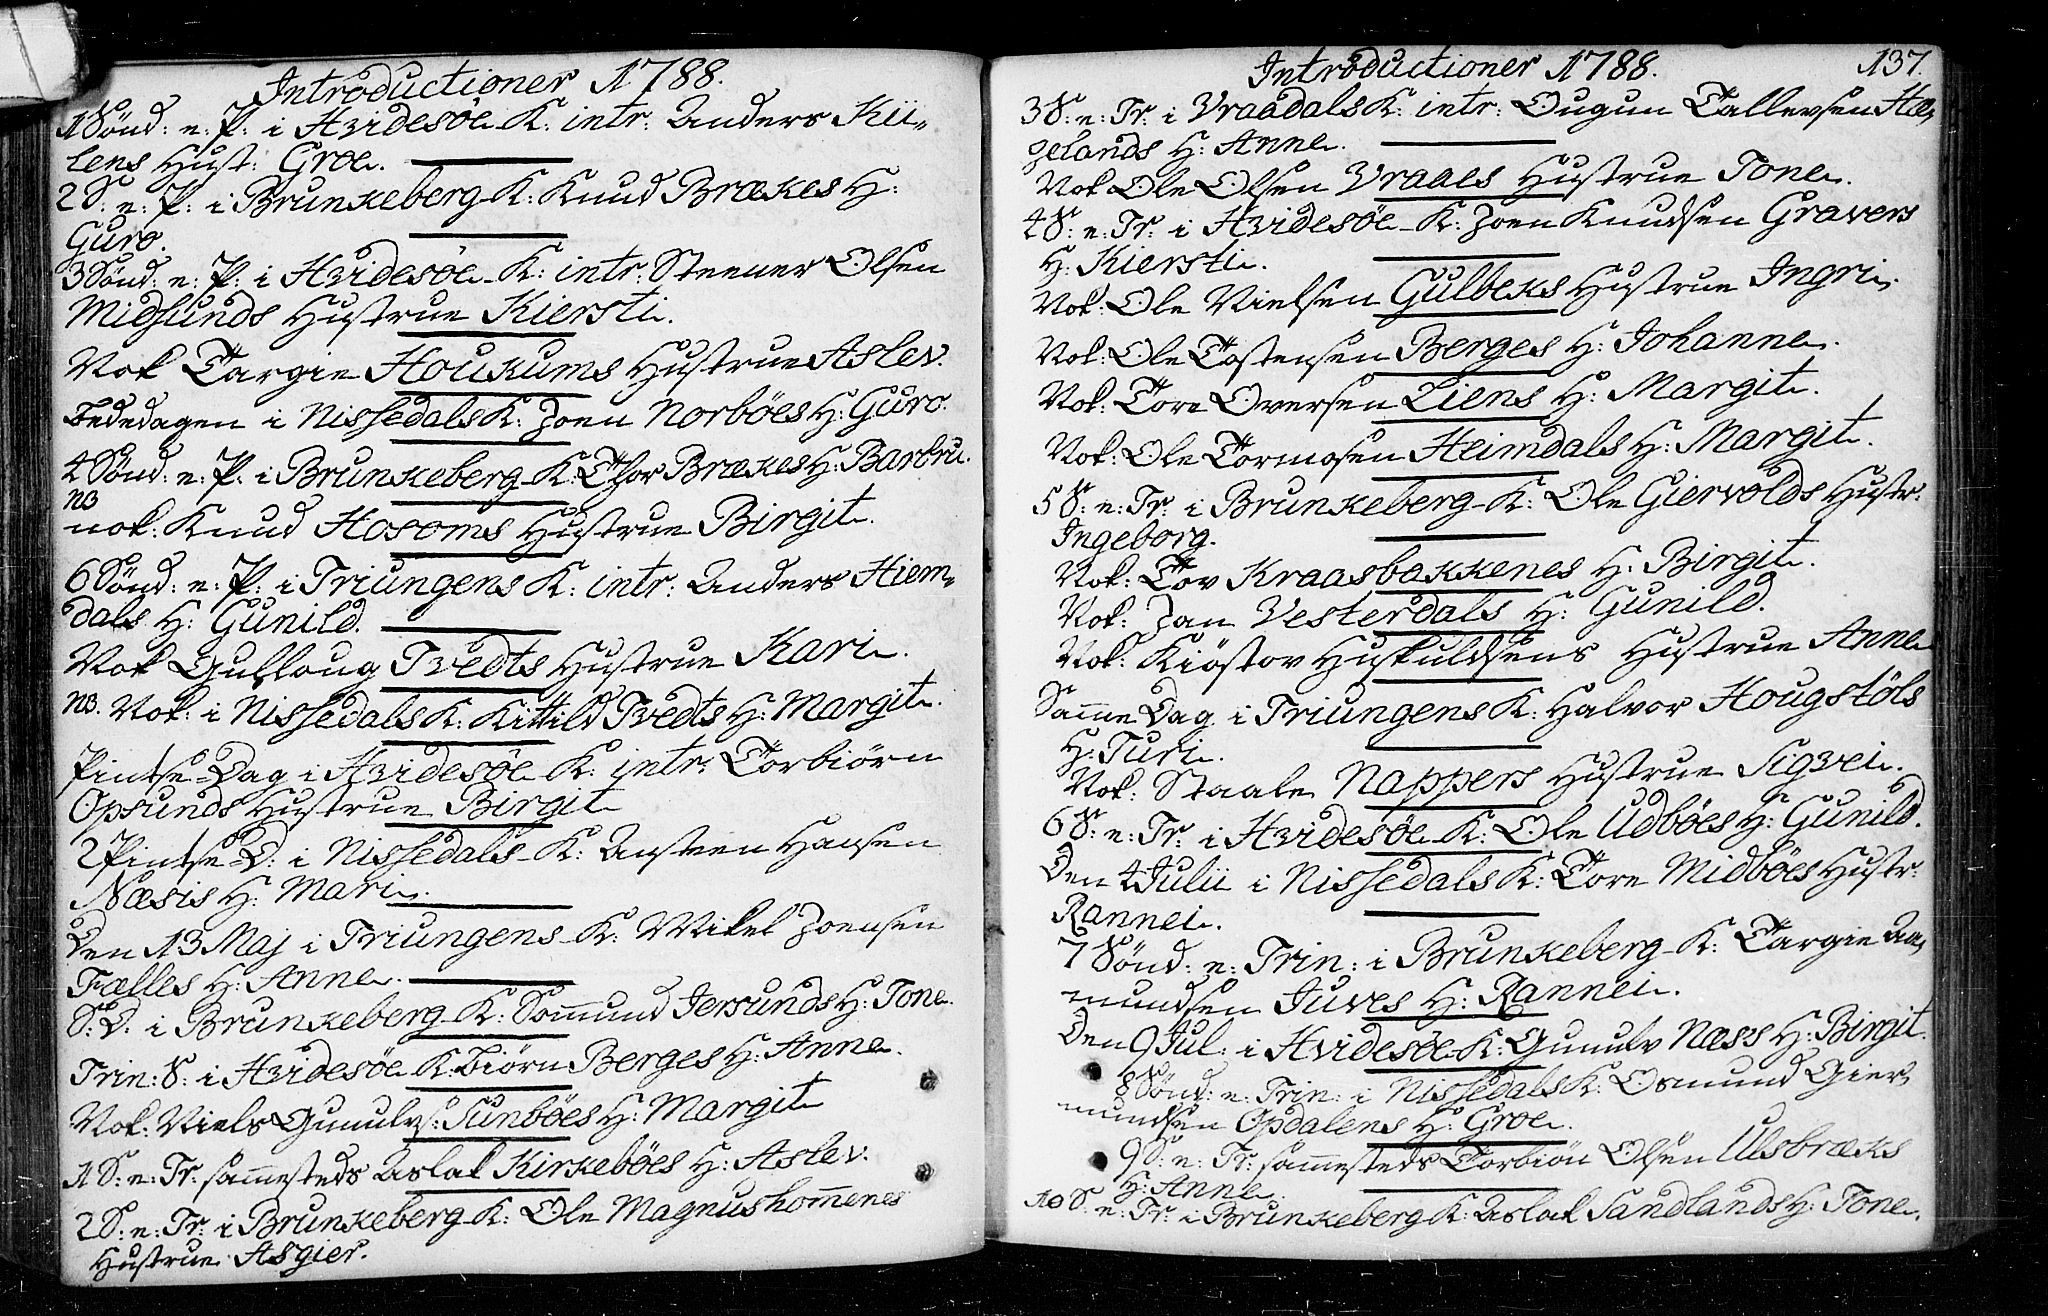 Introductioner 1788.
1 Sønd: e: P: i Hvidesøe K: intr: Anders Kii-
lens Hust: Groe.
2 S: e: P: i Brunkeberg K: Knud Brækes H:
Guro.
3 Sønd: e: P: i Hvidesøe K: intr: Steener Olsen
Midsunds Hustrue Kiersti.
Nok Targie Houkums Hustrue Aslev.
Bededagen i Nissedals K: Joen Norbøes H: Guro.
4 Sønd: e: P: i Brunkeberg K: Thor Brækes H: Barbru.
NB
nok: Knud Hosoms Hustrue Birgit.
6 Sønd: e: P: i Triungens K: intr: Anders Hiem-
dals H: Gunild.
Nok Gulloug Tvedts Hustrue Kari.
NB. Nok: i Nissedals K: Kittild Tvedts H: Margit.
Pintse-Dag i Hvidesøe K: intr: Torbiørn
Opsunds Hustrue Birgit
2 Pintse D: i Nissedals K: Austeen Hansen
Næsis H: Mari.
Den 13 Maj i Triungens K: Mikel Joensen
Fælles H: Anne.
S: D: i Brunkeberg K: Sommund Jersunds H: Tone.
Trin: S: i Hvidesøe K: Biørn Berges H: Anne.
Nok: Niels Gunulvs: Sunbøes H: Margit
1 S: e: Tr: sammesteds Aslak Kirkebøes H: Aslev.
2 S: e: Tr: i Brunkeberg K: Ole Magnushommenes
Hustrue Asgier.
Introductioner 1788.
137.
3 S: e: Tr: i Vraadals K: intr: Ougun Tallevsen Hæ-
gelands H: Anne.
Nok Ole Olsen Vraaes Hustrue Tone.
4 S: e: Tr: i Hvidesøe K: Joen Knudsen Gravers
H: Kiersti.
Nok: Ole Nielsen Gulbeks Hustrue Ingri.
Nok: Ole Tostensen Berges H: Johanne.
Nok: Tore Oversen Liens H: Margit.
Nok: Ole Tormosen Heimdals H: Margit.
5 S: e: Tr: i Brunkeberg K: Ole Giervolds Hustr:
Ingeborg.
Nok: Tov Kraasbakkenes H: Birgit.
Nok: Jan Vesterdals H: Gunild.
Nok: Kiøstov Huskuldsens Hustrue Anne
Samme Dag i Triungens K: Halvor Hougstøls
H: Turi.
Nok: Staale Nappers Hustrue Sigvei.
6 S: e: Tr: i Hvidesøe K: Ole Udbøes H: Gunild.
Den 4 Julii i Nissedals K: Tore Midbøes Hustr:
Rannei.
7 Sønd: e: Trin: i Brunkeberg K: Targie Aa-
mundsen Juves H: Rannei.
Den 9 Jul: i Hvidesøe K: Gunulv Næss H: Birgit.
8 Sønd: e: Trin: i Nissedals K: Osmund Gier-
mundsen Opdalens H: Groe.
9 S: e: Tr: sammesteds Torbiøn Olsen Ulsbræks
H: Anne
10 S: e: Tr: i Brunkeberg K: Aslak Sandlands H: Tone.